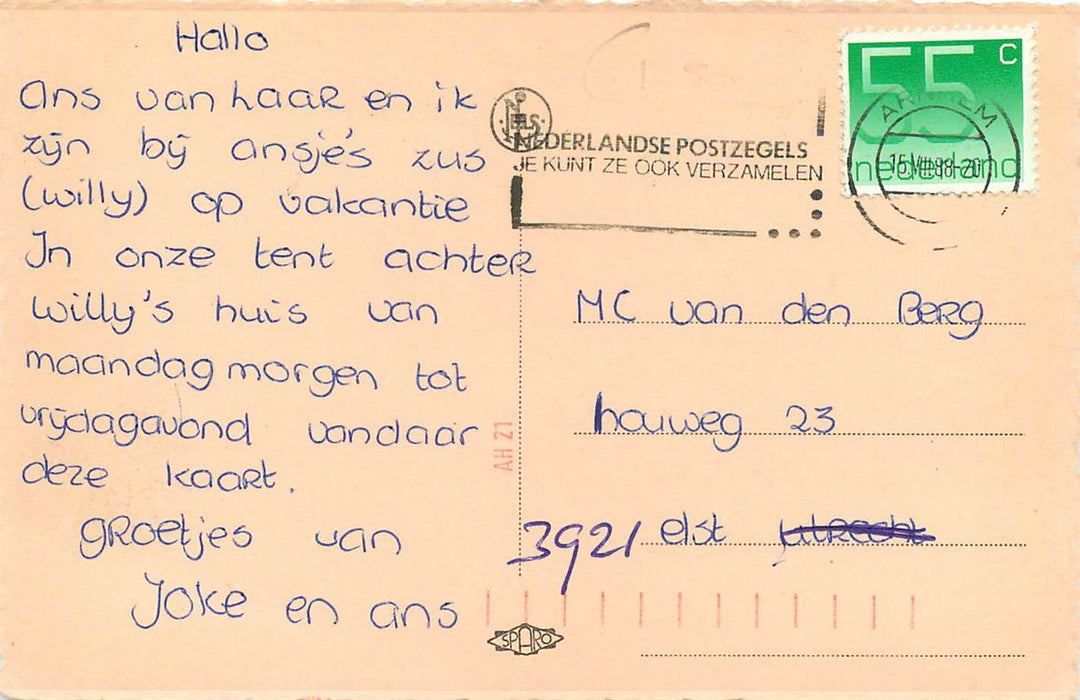 Hallo
Ans van haar en ik
zijn bij ansje's zus
(willy) op vakantie
In onze tent achter
willy's huis van
maandag morgen tot
vrijdagavond vandaar
deze kaart.
groetjes van
Joke en ans
55 c
nederland
ARNHEM
NEDERLANDSE POSTZEGELS
JE KUNT ZE OOK VERZAMELEN
MC van den Berg
houweg 23
3921 elst utrecht
AH 21
SPARO